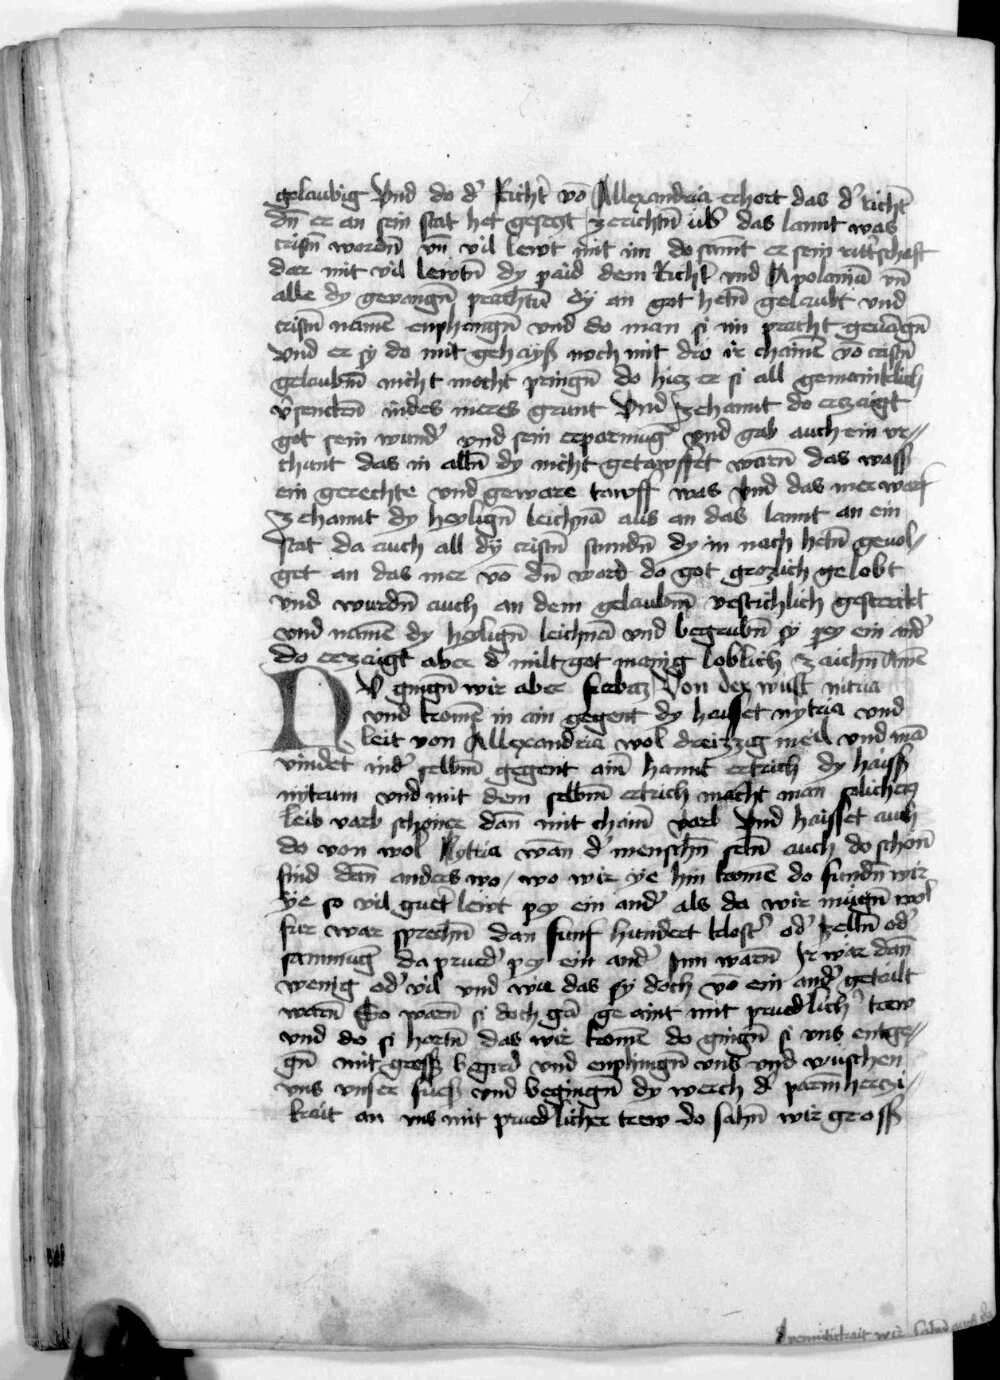 gelaubig Vnd do d' Richt' vō Allexandria erhort das d' richt'
dn̄ er an sein stat het gesetzt zerichtn̄ üb' das lannt was
cristn̄ wordn̄ vn̄ vil lewt mit im do sannt er sein ritt'schaft
dar mit vil lewtn̄ dy paid dem Richt' vnd Apoloniā vn̄
alle dy gevangn̄ prachtn̄ dy an got hetn̄ gelaubt vnd
cristn̄ namē enphangn̄ vnd do man si im pracht gevāgn̄
Vnd er sy do mit gehaÿss noch mit dro ir chainē vō cristn̄
gelaubn̄ nicht mocht pringn̄ do hiez er si all gemainklich
v'senckn̄ indes meres grunt Vnd zehannt do erzaigt
got sein wund' vnd sein erparmuḡ vnd gab auch ein vr//
chunt das in alln̄ dy nicht getawffet warn̄ das wass'
ein gerechte vnd geware tawff was Vnd das mer warf
zehannt dy heylign̄ leichnā aus an das lannt an ein
stat da auch all dÿ cristn̄ stundn̄ dy in nach hetn̄ gevol/
get an das mer vō dn̄ ward do got grozlich gelobt
vnd wurdn̄ auch an dem gelaubn̄ vestichlich gesterckt
vnd namē dy heylign̄ leichnā vnd begrubn̄ sy pey ein and'
do erzaigt aber d' milt got manig loblich zaichn̄ Amē
NV gingn̄ wir aber furbaz Von der wust nitria
vnd komē in ain gegent dy haisset nytria vnd
leit von Allexandria wol dreizzig meil vnd mā
vindet ind' selbn̄ gegent ain̄ hannt ertrich dy haiss
nytrum vnd mit dem selbn̄ ertrich macht man solichew
leib varb schoner dan̄ mit chain̄ varb Vnd haisset auch
do von wol Nytria wān d' menschn̄ seln̄ auch do schon̄
sind dan̄ anders wo / wo wir ye hin komē do fundn̄ wir
ye so vil guet' lewt pey ein and' als da wir mügn̄ wol
fur war sprechn̄ dan funf hundert klost' od' zelln̄ od'
samnuḡ da prued' pey ein and' Inn warn̄ Ir war dan̄
wenig od' vil vnd wie das sy doch vō ein and' getailt
warn̄ So warn̄ si doch gā ge aint mit prued'lich' trew
vnd do si hortn̄ das wir komē do gingn̄ si vns entge//
gn̄ mit gross' begird vnd enphingn̄ vns vnd wuschen
vns vnser fuess vnd begingn̄ dy werch d' parmherczi/
kait an vns mit prued'licher trew do sahn̄ wir gross
diemütichait wir sahn̄ auch da